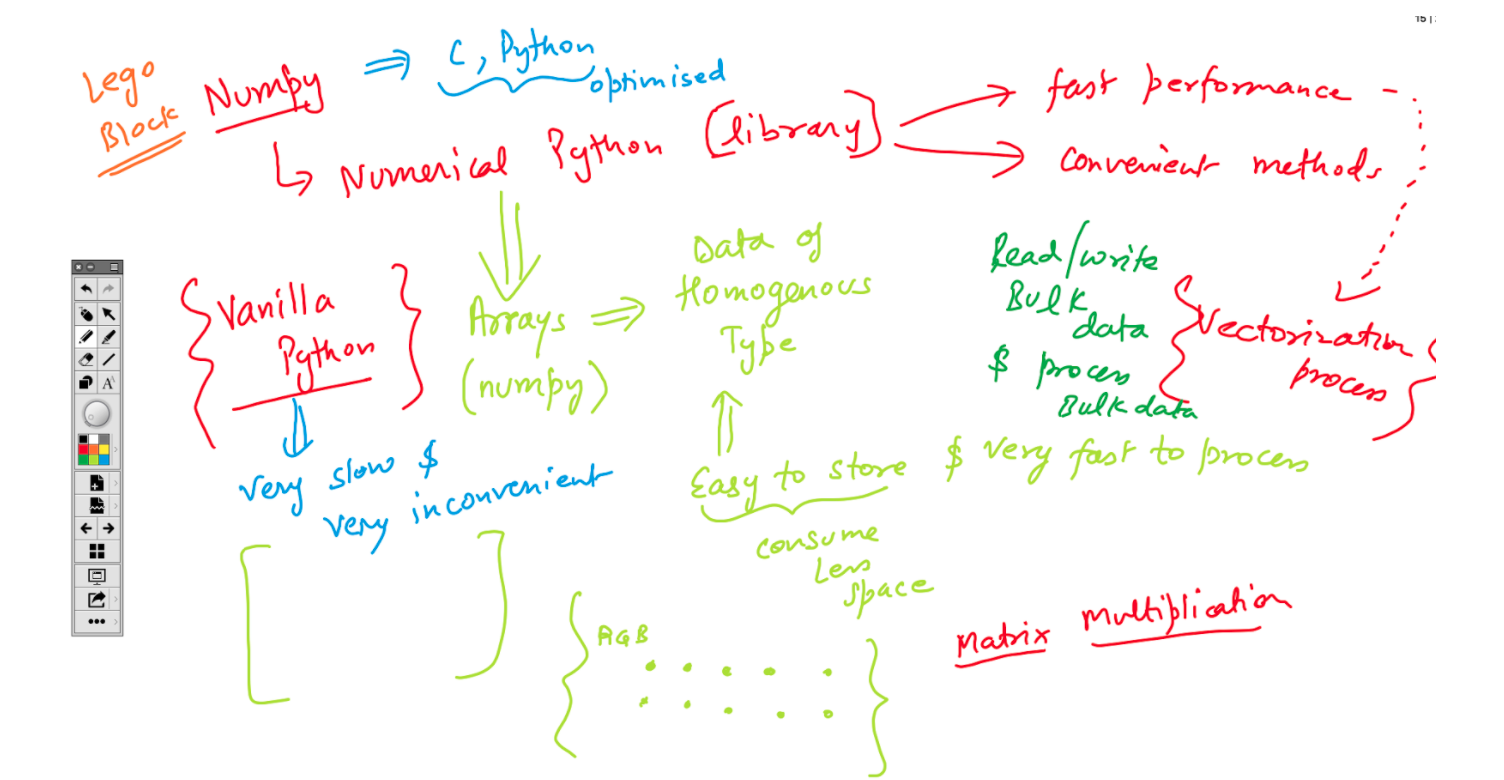 Lego
Block
Numpy ⇒ C, Python
optimised
↳ Numerical Python (library) → fast performance
→ convenient methods
{Vanilla
Python}
very slow $
very inconvenient
Arrays ⇒
(numpy)
Data of
Homogenous
Type
Easy to store $ very fast to process
consume
Less
space
Read/write
Bulk
data
$ process
Bulk data
{Vectorization
process}
RGB
Matrix Multiplication